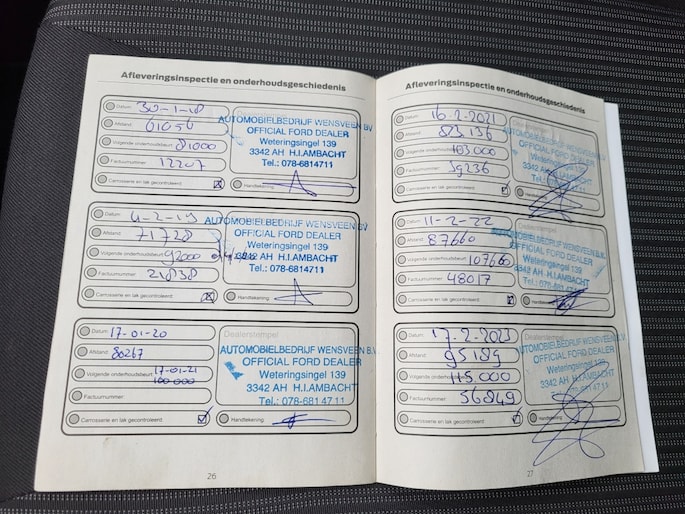 Afleveringsinspectie en onderhoudsgeschiedenis
Datum: 30-1-18
Afstand: 61056
Volgende onderhoudsbeurt: 81000
Factuurnummer: 12207
Carrosserie en lak gecontroleerd:
AUTOMOBIELBEDRIJF WENSVEEN BV
OFFICIAL FORD DEALER
Weteringsingel 139
3342 AH H.I.AMBACHT
Tel.: 078-6814711
Handtekening:
Datum: 4-2-19
Afstand: 71728
Volgende onderhoudsbeurt: 92000
Factuurnummer: 21838
Carrosserie en lak gecontroleerd:
AUTOMOBIELBEDRIJF WENSVEEN BV
OFFICIAL FORD DEALER
Weteringsingel 139
3342 AH H.I.AMBACHT
Tel.: 078-6814711
Handtekening:
Datum: 17-01-20
Afstand: 80267
Volgende onderhoudsbeurt: 17-01-21
100 000
Factuurnummer:
Carrosserie en lak gecontroleerd:
Dealerstempel
AUTOMOBIELBEDRIJF WENSVEEN B.V.
OFFICIAL FORD DEALER
Weteringsingel 139
3342 AH H.I.AMBACHT
Tel.: 078-681 47 11
Handtekening:
26
Afleveringsinspectie en onderhoudsgeschiedenis
Datum: 16-2-2021
Afstand:
Volgende onderhoudsbeurt: 103000
Factuurnummer: 39236
Carrosserie en lak gecontroleerd:
AUTOMOBIELBEDRIJF WENSVEEN B.V.
OFFICIAL FORD DEALER
Weteringsingel 139
3342 AH H.I.AMBACHT
Tel.: 078-681 47 11
Handtekening:
Datum: 11-2-22
Afstand: 87660
Volgende onderhoudsbeurt: 107660
Factuurnummer: 48017
Carrosserie en lak gecontroleerd:
AUTOMOBIELBEDRIJF WENSVEEN B.V.
OFFICIAL FORD DEALER
Weteringsingel 139
3342 AH H.I.AMBACHT
Tel.: 078-681 47 11
Datum: 17-2-2023
Afstand: 95189
Volgende onderhoudsbeurt: 115.000
Factuurnummer: 56849
Carrosserie en lak gecontroleerd:
Dealerstempel
AUTOMOBIELBEDRIJF WENSVEEN B.V.
OFFICIAL FORD DEALER
Weteringsingel 139
3342 AH H.I.AMBACHT
Tel.: 078-681 47 11
Handtekening:
27